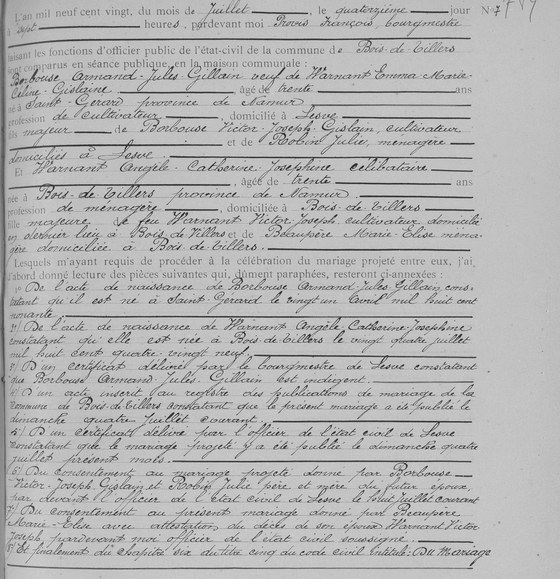 L'an mil neuf cent vingt, du mois de Juillet, le quatorzième jour N° 7
à sept heures, pardevant moi Provis François, bourgmestre
faisant les fonctions d'officier public de l'état-civil de la commune de Bois-de-Villers
sont comparus en séance publique, en la maison communale :
Borbouse Armand-Jules Gillain veuf de Warnant Emma-Marie-
Céline-Gislaine âgé de trente ans
né à Saint-Gérard province de Namur
profession de cultivateur, domicilié à Lesve
fils majeur de Borbouse Victor-Joseph-Gislain, cultivateur
et de Robin Julie, ménagère
domiciliés à Lesve
Et Warnant Angèle-Catherine-Josephine célibataire
, âgée de trente ans
née à Bois-de-Villers province de Namur
profession de ménagère, domiciliée à Bois-de-Villers
fille majeure de feu Warnant Victor Joseph cultivateur domicilié
en dernier lieu à Bois-de-Villers et de Beaupère Marie-Elise ména-
gère domiciliée à Bois-de-Villers.
Lesquels m'ayant requis de procéder à la célébration du mariage projeté entre eux, j'ai
d'abord donné lecture des pièces suivantes qui, dûment paraphées, resteront ci-annexées :
1° De l'acte de naissance de Borbouse Armand-Jules Gillain, cons-
tatant qu'il est né à Saint-Gérard le vingt un avril mil huit cent
nonante.
2°/ De l'acte de naissance de Warnant Angèle-Catherine-Josephine
constatant qu'elle est née à Bois-de-Villers le vingt quatre juillet
mil huit cent quatre-vingt neuf
3°/ D'un certificat délivré par le bourgmestre de Lesve constatant
que Borbouse Armand-Jules-Gillain est indigent.
D'un acte inscrit au registre des publications de mariage de la
commune de Bois-de-Villers constatant que le présent mariage a été publié le
dimanche quatre juillet courant.
D'un certificat délivré par l'officier de l'état civil de Lesve
constatant que le mariage projeté y a été publié le dimanche quatre
juillet présent mois.
6° Du consentement au mariage projeté donné par Borbouse
Victor-Joseph-Gislain et Robin Julie père et mère du futur époux,
par devant l'officier de l'état civil de Lesve le huit juillet courant
7°/ Du consentement au présent mariage donné par Beaupère
Marie-Elise avec attestation du décès de son époux Warnant Victor
Joseph, pardevant moi officier de l'état civil soussigné.
8°/ Et finalement du chapitre six du titre cinq du code civil intitulé : Du Mariage